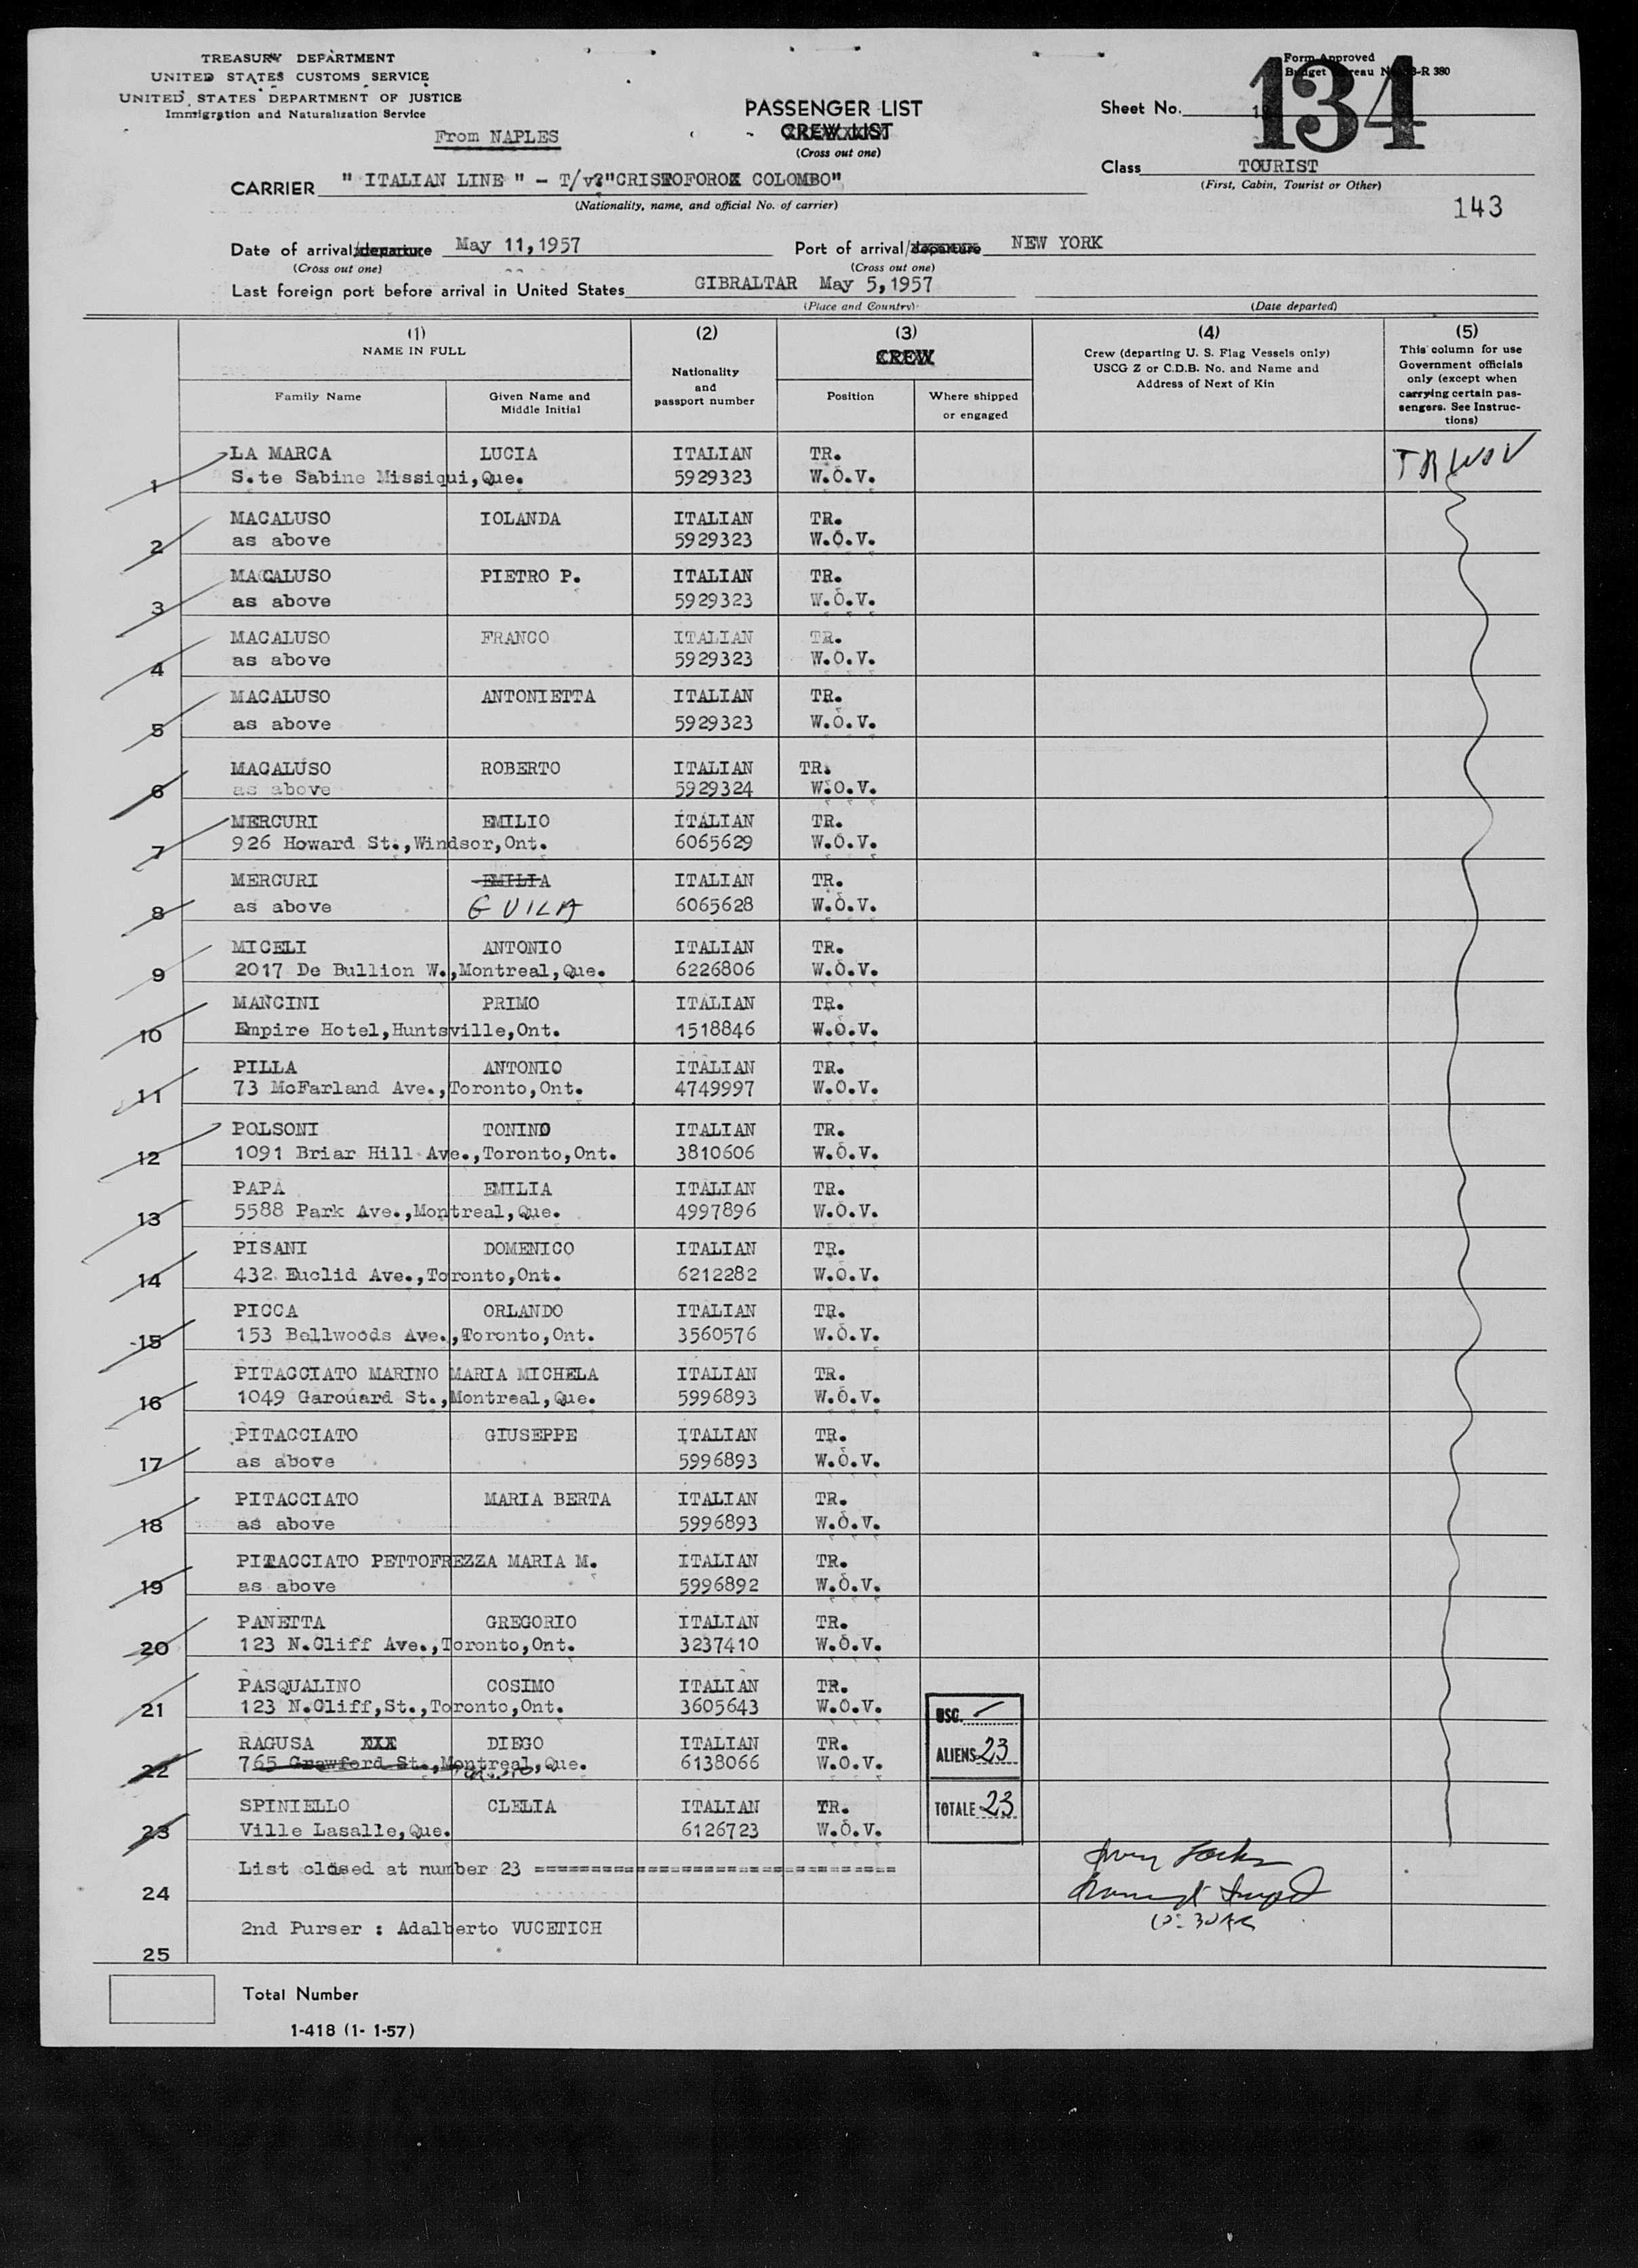 TREASURY DEPARTMENT
UNITED STATES CUSTOMS SERVICE
UNITED STATES DEPARTMENT OF JUSTICE
Immigration and Naturalization Service
From NAPLES
PASSENGER LIST
CREW LIST
(Cross out one)
Form Approved
Budget Bureau No. R 380
Sheet No.
134
Class TOURIST
(First, Cabin, Tourist or Other)
143
CARRIER " ITALIAN LINE " - T/v "CRISTOFORO COLOMBO"
(Nationality, name, and official No. of carrier)
Date of arrival/departure May 11,1957 Port of arrival/departure NEW YORK
(Cross out one) (Cross out one)
Last foreign port before arrival in United States GIBRALTAR May 5,1957
(Place and Country) (Date departed)
(1) (2) (3) (4) (5)
NAME IN FULL
Family Name
Given Name and Middle Initial
Nationality and passport number
CREW
Position
Where shipped or engaged
Crew (departing U. S. Flag Vessels only)
USCG Z or C.D.B. No. and Name and
Address of Next of Kin
This column for use
Government officials
only (except when
carrying certain pas-
sengers. See Instruc-
tions)
LA MARCA LUCIA ITALIAN TR. TRWOV
1 S.te Sabine Missiqui,Que. 5929323 W.O.V.
MACALUSO IOLANDA ITALIAN TR.
2 as above 5929323 W.O.V.
MACALUSO PIETRO P. ITALIAN TR.
3 as above 5929323 W.O.V.
MACALUSO FRANCO ITALIAN TR.
4 as above 5929323 W.O.V.
MACALUSO ANTONIETTA ITALIAN TR.
5 as above 5929323 W.O.V.
MACALUSO ROBERTO ITALIAN TR.
6 as above 5929324 W.O.V.
MERCURI EMILIO ITALIAN TR.
7 926 Howard St.,Windsor,Ont. 6065629 W.O.V.
MERCURI EMILIA ITALIAN TR.
8 as above GUILA 6065628 W.O.V.
MICELI ANTONIO ITALIAN TR.
9 2017 De Bullion W.,Montreal,Que. 6226806 W.O.V.
MANCINI PRIMO ITALIAN TR.
10 Empire Hotel,Huntsville,Ont. 1518846 W.O.V.
PILLA ANTONIO ITALIAN TR.
11 73 McFarland Ave.,Toronto,Ont. 4749997 W.O.V.
POLSONI TONINO ITALIAN TR.
12 1091 Briar Hill Ave.,Toronto,Ont. 3810606 W.O.V.
PAPA EMILIA ITALIAN TR.
13 5588 Park Ave.,Montreal,Que. 4997896 W.O.V.
PISANI DOMENICO ITALIAN TR.
14 432 Euclid Ave.,Toronto,Ont. 6212282 W.O.V.
PICCA ORLANDO ITALIAN TR.
15 153 Bellwoods Ave.,Toronto,Ont. 3560576 W.O.V.
PITACCIATO MARINO MARIA MICHELA ITALIAN TR.
16 1049 Garouard St.,Montreal,Que. 5996893 W.O.V.
PITACCIATO GIUSEPPE ITALIAN TR.
17 as above 5996893 W.O.V.
PITACCIATO MARIA BERTA ITALIAN TR.
18 as above 5996893 W.O.V.
PITACCIATO PETTOFREZZA MARIA M. ITALIAN TR.
19 as above 5996892 W.O.V.
PANETTA GREGORIO ITALIAN TR.
20 123 N.Cliff Ave.,Toronto,Ont. 3237410 W.O.V.
PASQUALINO COSIMO ITALIAN TR.
21 123 N.Cliff,St.,Toronto,Ont. 3605643 W.O.V.
USC.
RAGUSA XXX DIEGO ITALIAN TR.
ALIENS 23
22 765 Crawford St.,Montreal,Que. 6138066 W.O.V.
SPINIELLO CLELIA ITALIAN TR.
TOTALE 23
23 Ville Lasalle,Que. 6126723 W.O.V.
List closed at number 23 ================================
24
2nd Purser : Adalberto VUCETICH
25
Total Number
1-418 (1- 1-57)